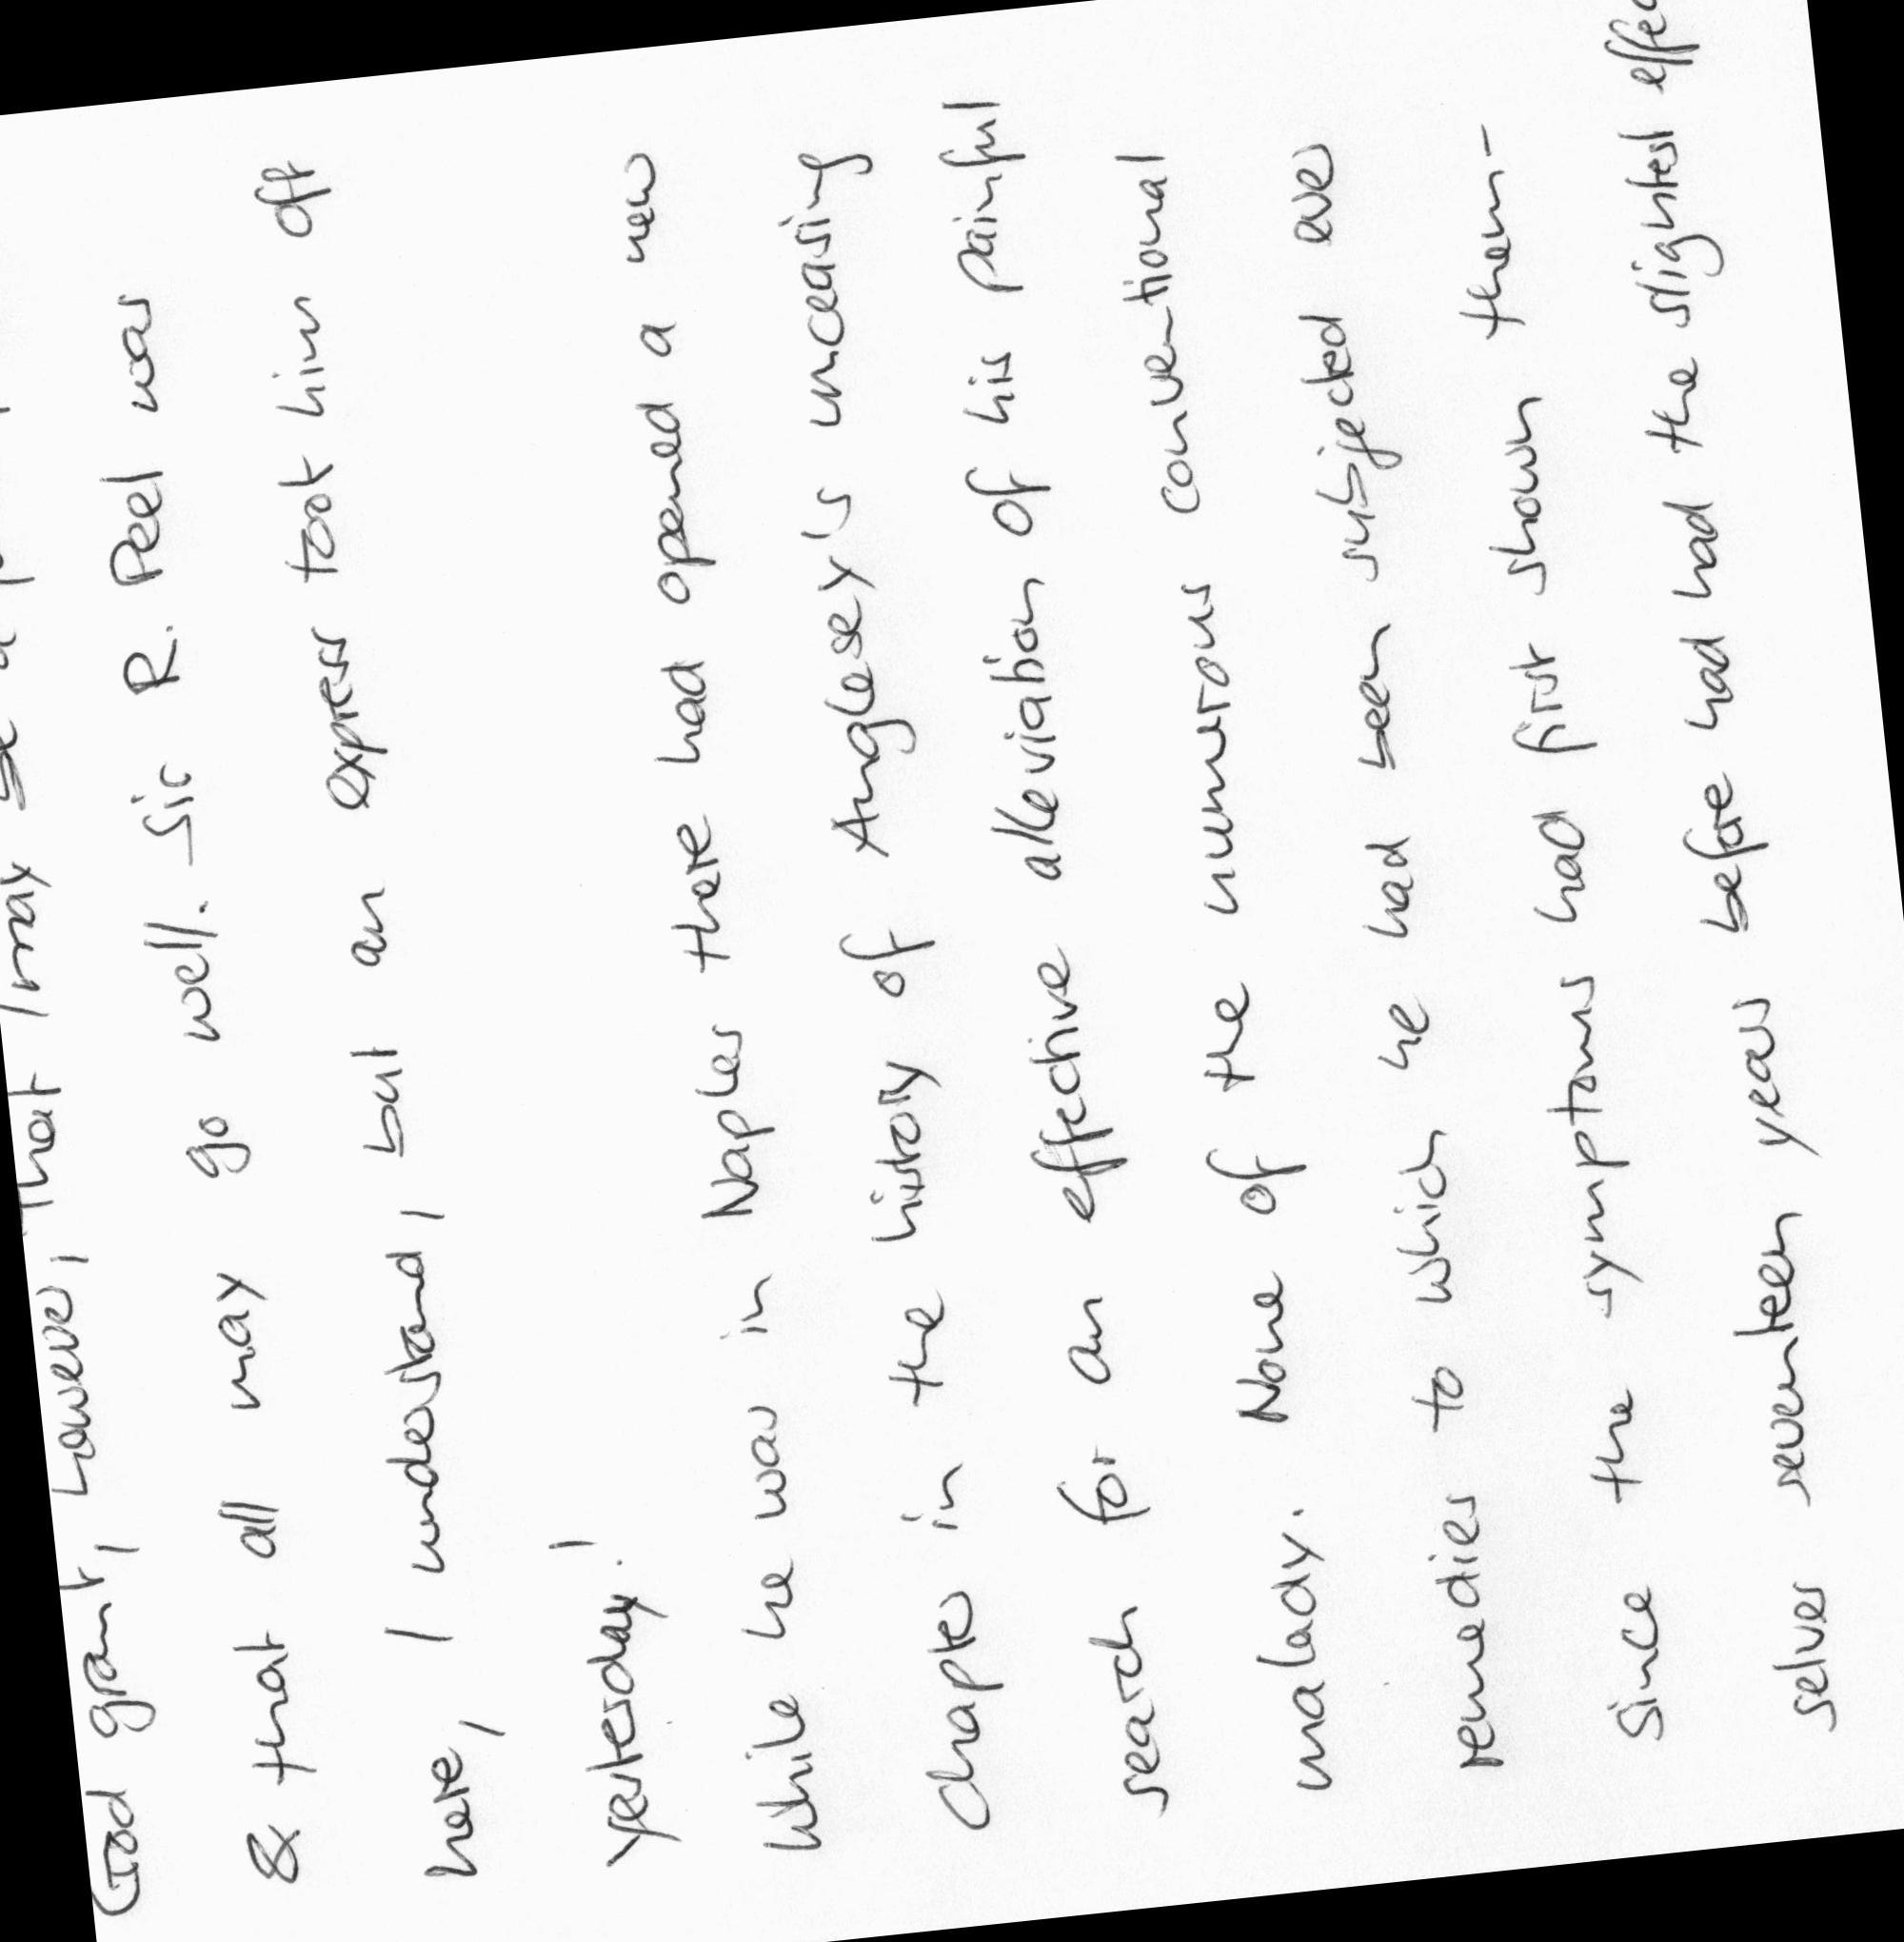 God grant, however, that I may be a
& that all may go well. Sir R. Peel was
here, I understand, but an express took him off
yesterday!
While he was in Naples there had opened a new
chapter in the history of Anglesey's unceasing
search for an effective alleviation of his painful
malady. None of the numerous conventional
remedies to which he had been subjected ever
since the symptoms had first shown them-
selves seventeen years before had had the slightest effec